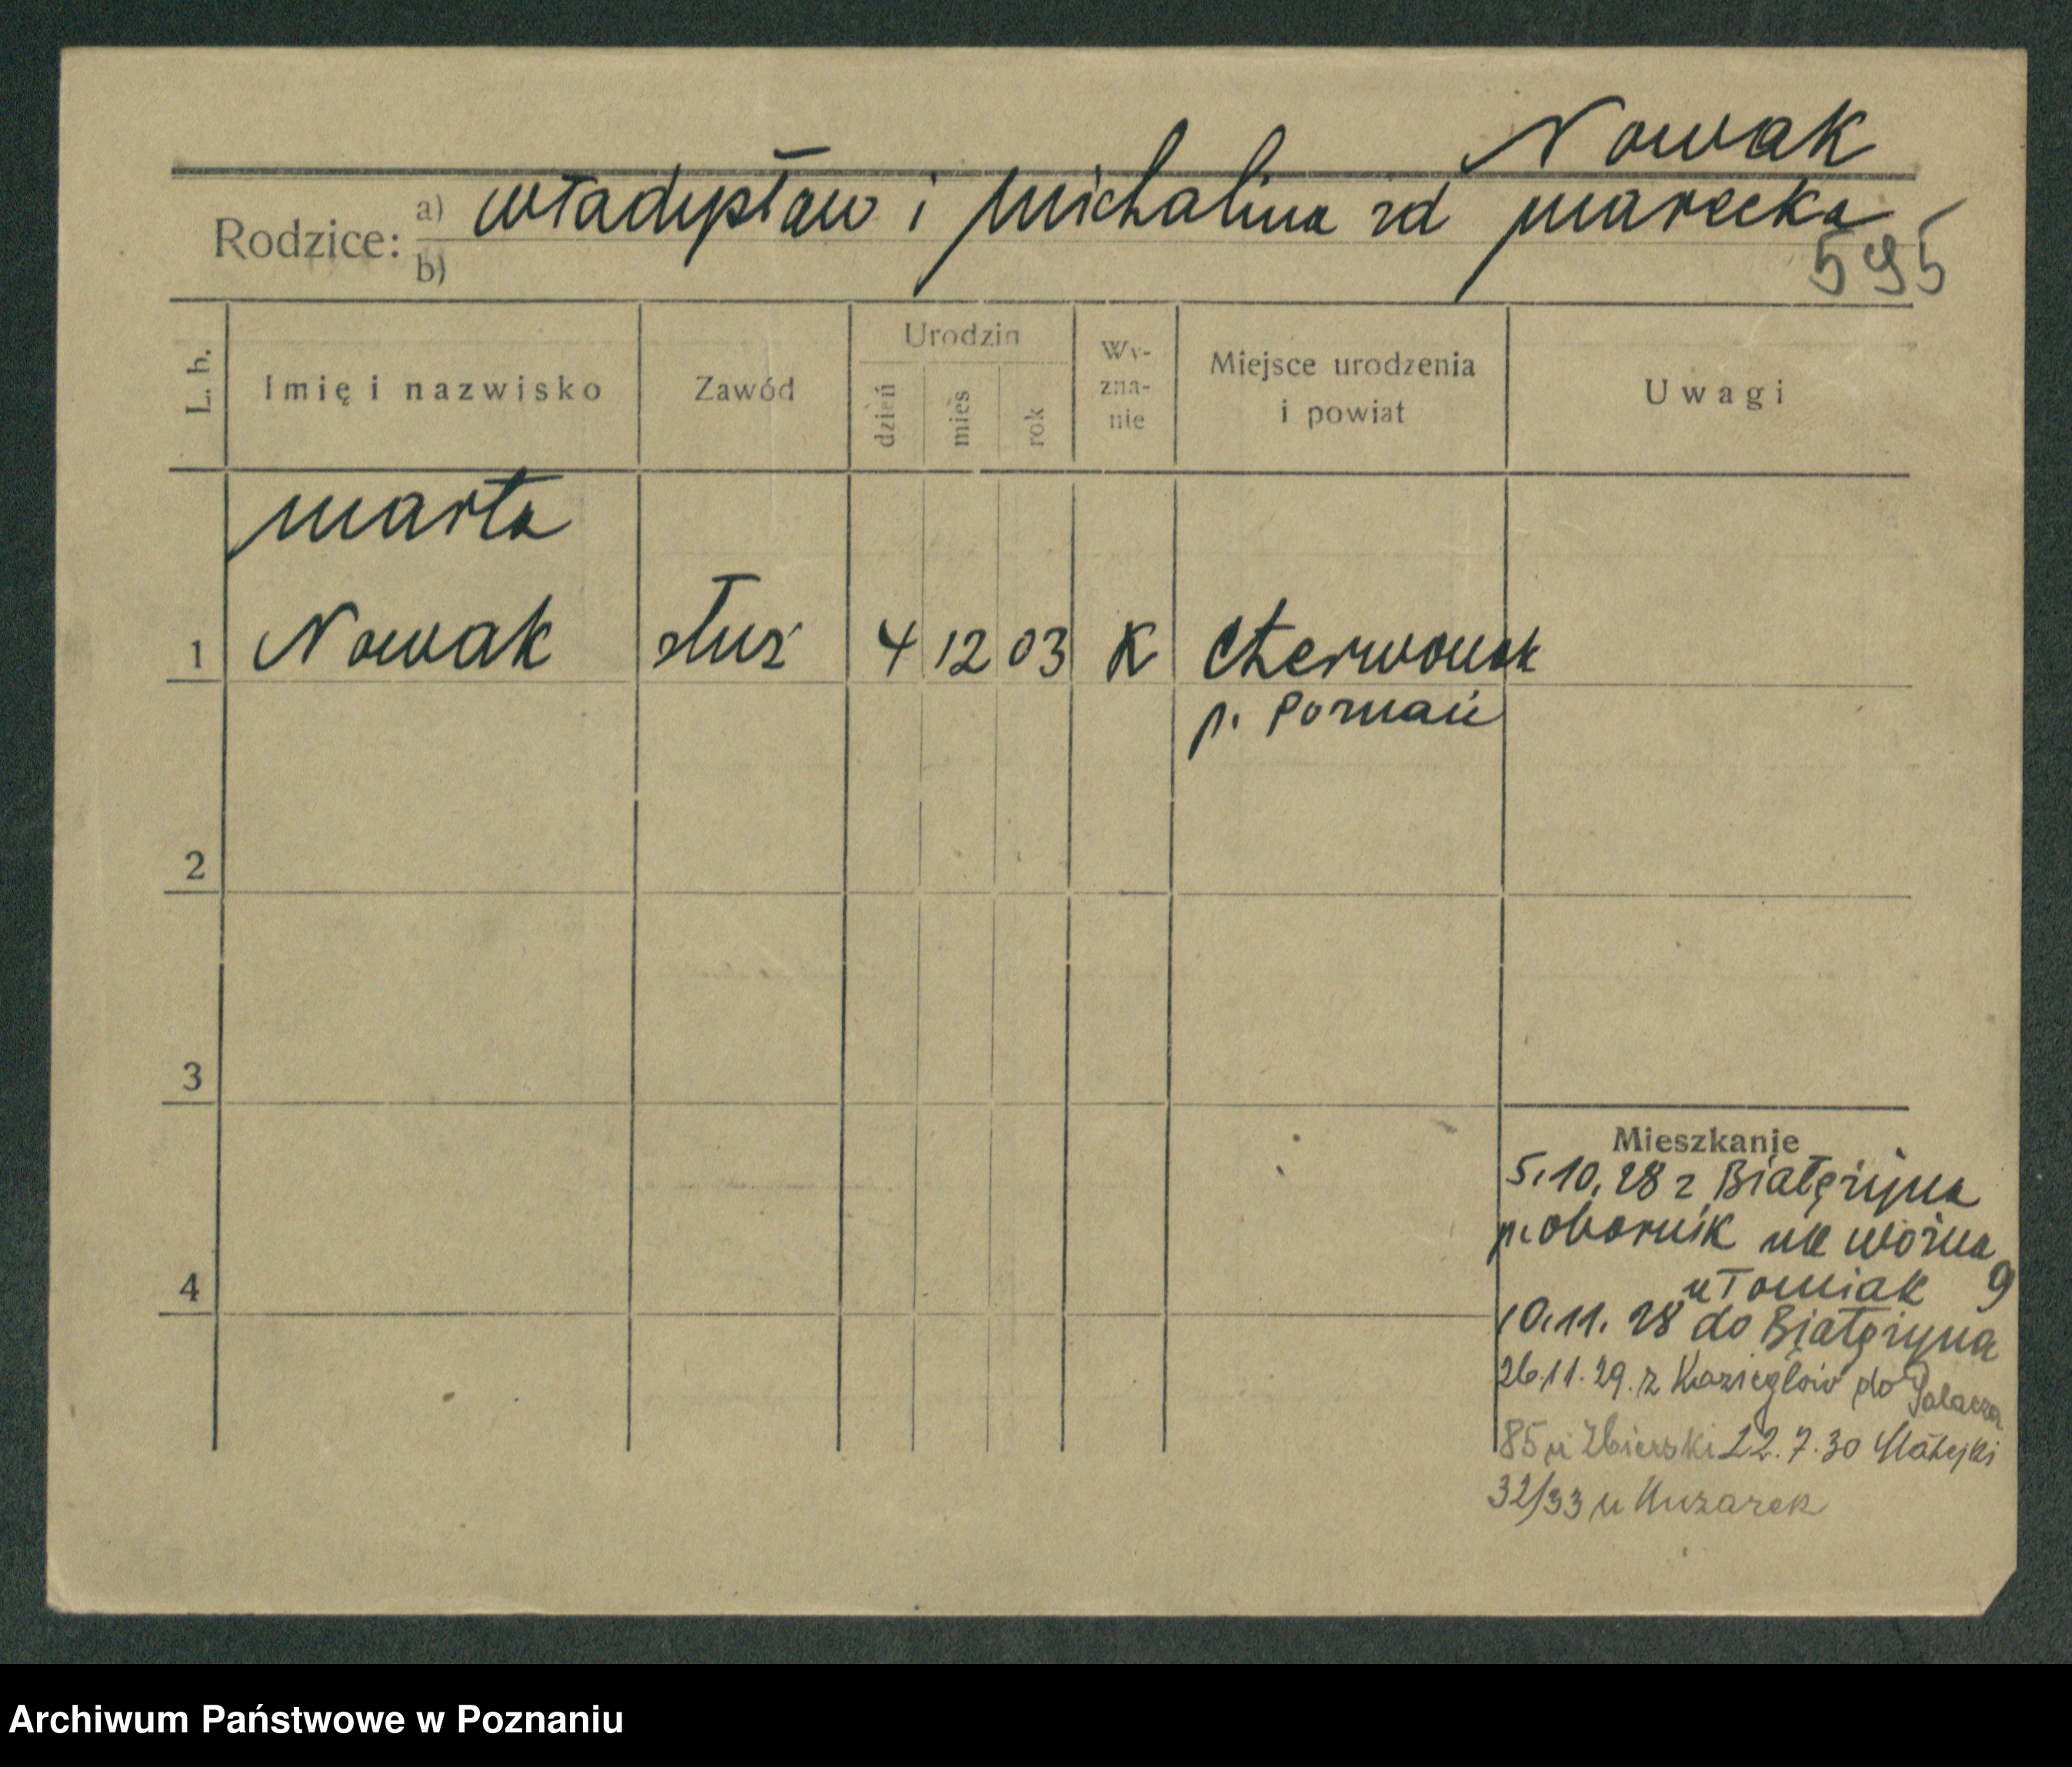 Nowak
Rodzice: a) Władysław i Michalina zd Marecka
b)
595
L. b. Imię i nazwisko Zawód Urodzin dzień mieś rok Wy-zna-nie Miejsce urodzenia i powiat Uwagi
Marta
1 Nowak służ 4 12 03 K Czerwonak
p. Poznań
2
3
Mieszkanie
5.10.28 z Białężyna
p. Obornik na Woźna 9
4 u Tomiak
10.11.28 do Białężyna
26.11.29. z Koziegłów do Palacza
85 u Zbierski 22.7.30 Matejki
32/33 u Huzarek
Archiwum Państwowe w Poznaniu